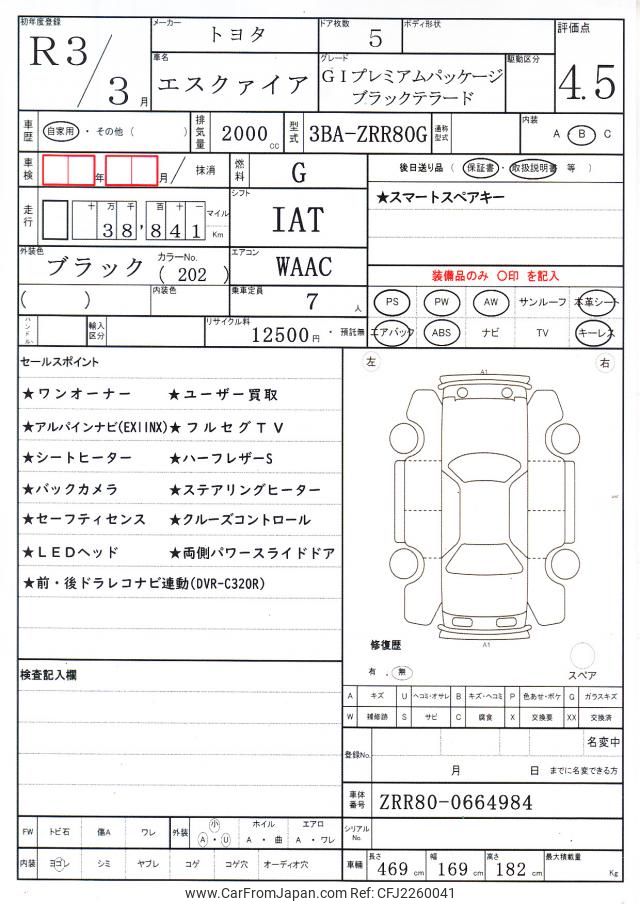 初年度登録 メーカー ドア枚数 ボディ形状 評価点
R3/3月 トヨタ 5 4.5
車名 グレード 駆動区分
エスクァイア GIプレミアムパッケージ
ブラックテラード
車歴 自家用・その他( ) 排気量 2000cc 型式 3BA-ZRR80G 通称型式 内装 A・B C
車検 年 月/ 抹消 燃料 G 後日送り品 ( 保証書・取扱説明書 等 )
走行 十万千百十一 38,841 マイル Km シフト IAT ★スマートスペアキー
外装色 ブラック カラーNo. (202) エアコン WAAC 装備品のみ 〇印 を記入
( ) 内装色 乗車定員 7人 PS PW AW サンルーフ 本革シート
ハンドル 輸入区分 リサイクル料 12500円・預託無 エアバック ABS ナビ TV キーレス
セールスポイント 左 右
★ワンオーナー ★ユーザー買取
★アルパインナビ(EX11NX)★フルセグTV
★シートヒーター ★ハーフレザーS
★バックカメラ ★ステアリングヒーター
★セーフティセンス ★クルーズコントロール
★LEDヘッド ★両側パワースライドドア
★前・後ドラレコナビ連動(DVR-C320R)
A1
A1
修復歴
有.無 スペア
検査記入欄
A キズ U ヘコミ・オサレ B キズ・ヘコミ P 色あせ・ボケ G ガラスキズ
W 補修跡 S サビ C 腐食 X 交換要 XX 交換済
登録No. 名変中
月 日 までに名変できる方
車体番号 ZRR80-0664984
FW トビ石 傷A ワレ 外装 小 A・U ホイル A・曲 エアロ A・ワレ シリアルNo.
内装 ヨゴレ シミ ヤブレ コゲ コゲ穴 オーディオ穴 車輌 長さ 469cm 幅 169cm 高さ 182cm 最大積載量 Kg
www.CarFromJapan.com Ref: CFJ2260041